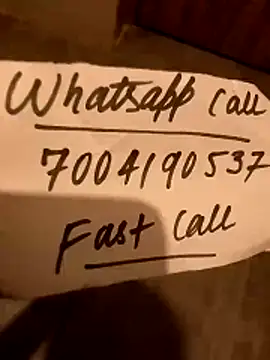 Whatsapp Call
7004190537
Fast Call